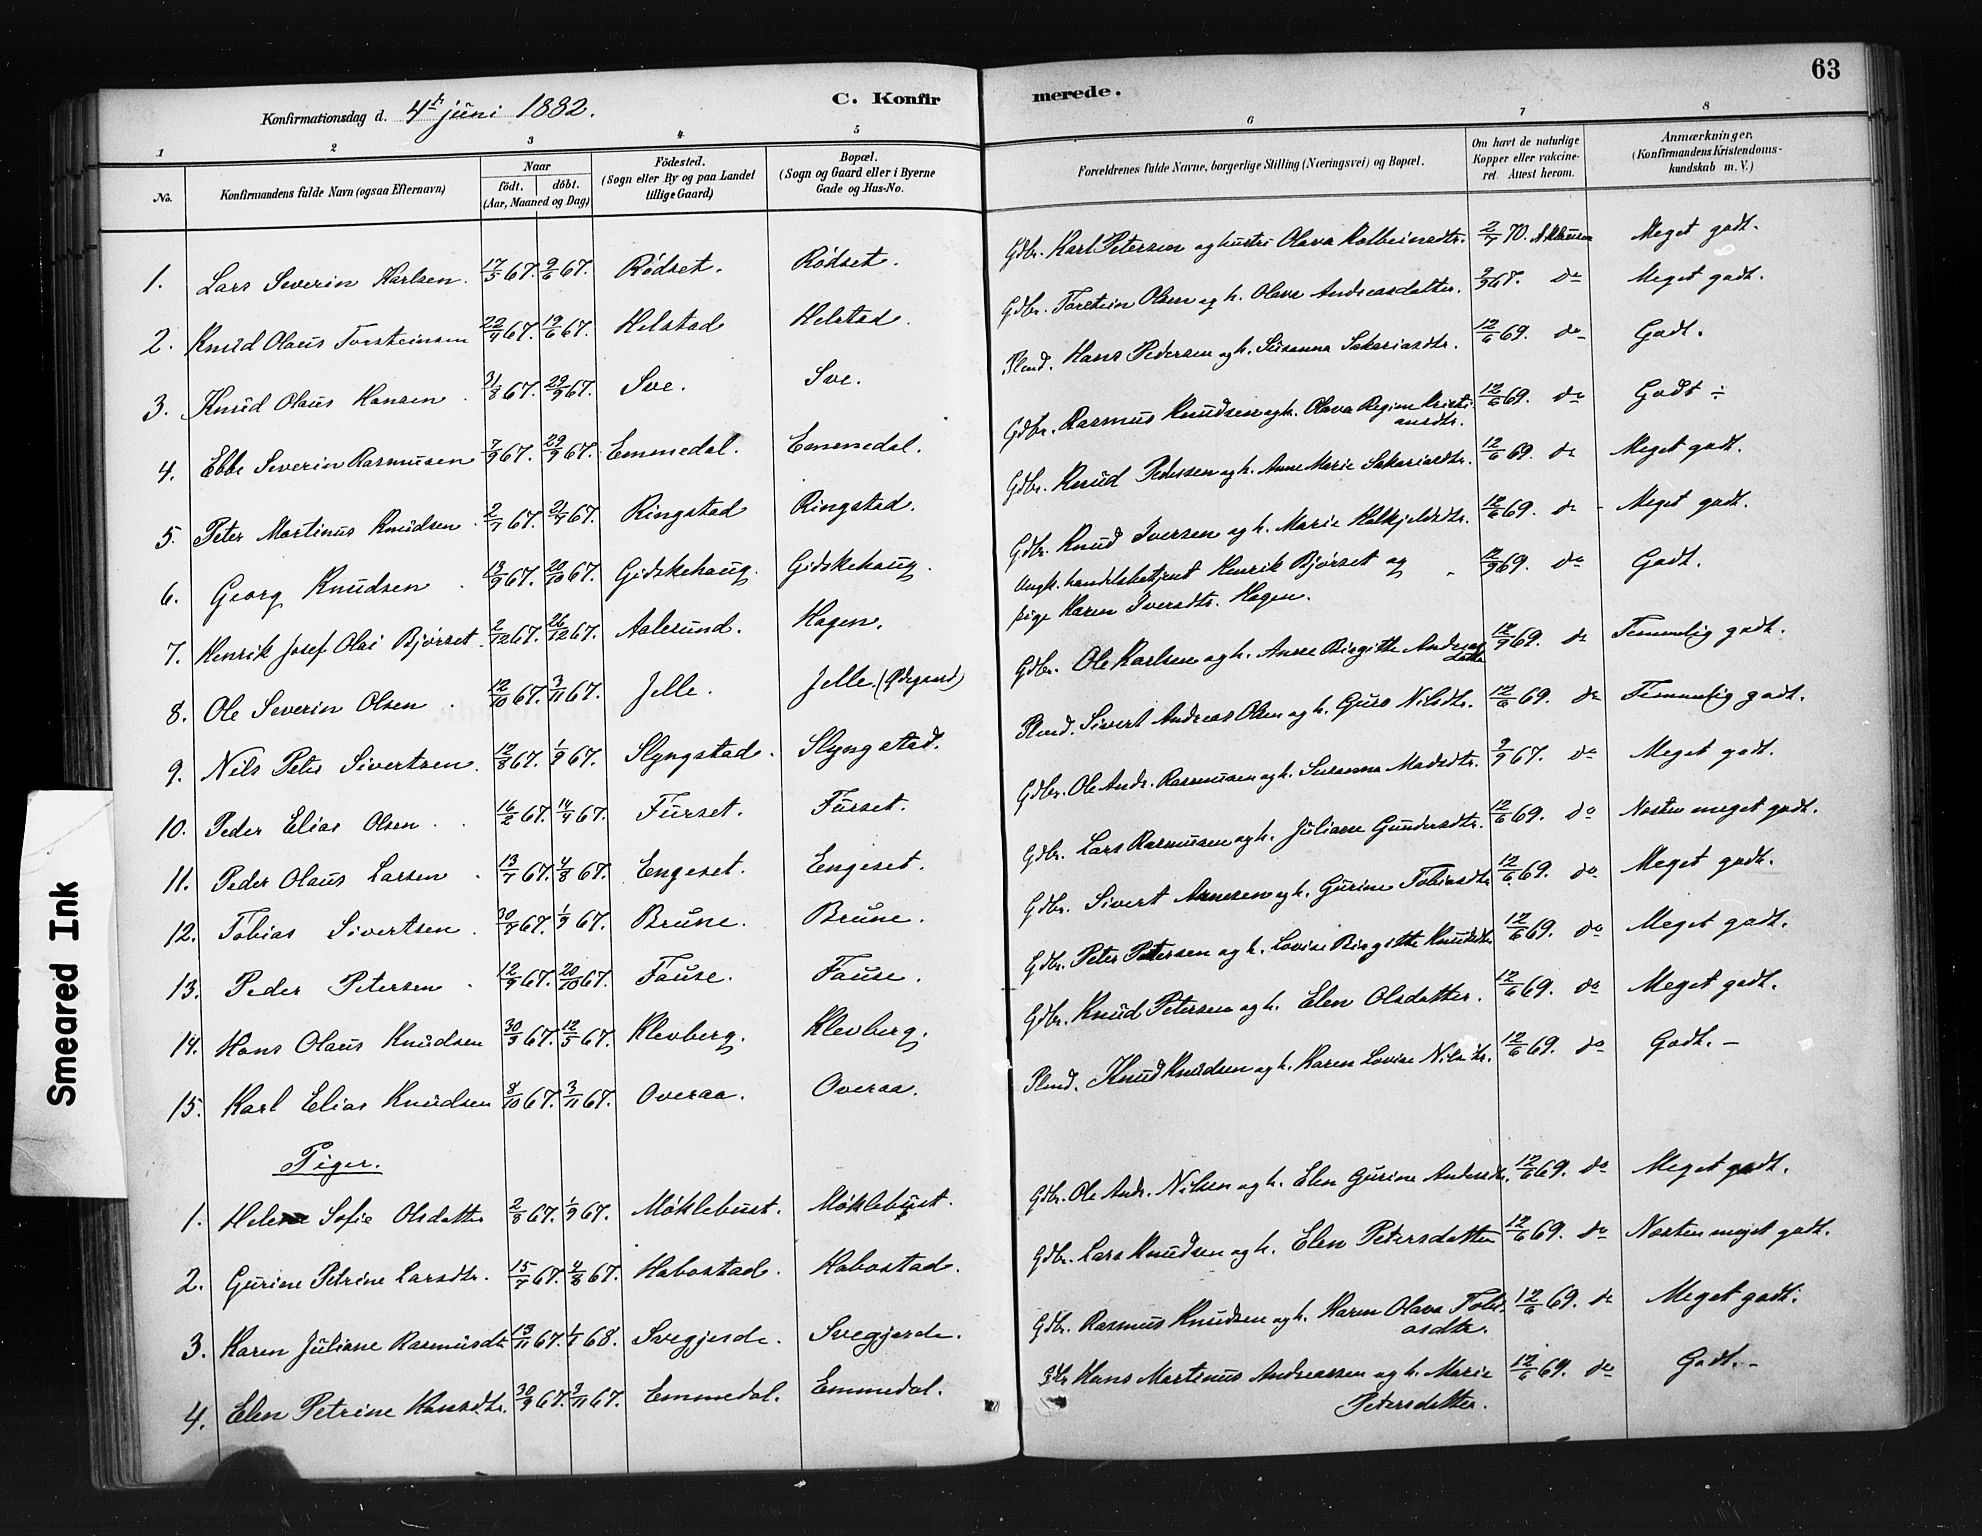 63
Konfirmationsdag d. 4de juni 1882. C. Konfirmerede.
1 2 3 4 5 6 7 8
No. Konfirmandens fulde Navn (ogsaa Efternavn) Naar født. døbt. (Aar, Maaned og Dag) Fødested. (Sogn eller By og paa Landet tillige Gaard) Bopæl. (Sogn og Gaard eller i Byerne Gade og Hus-No. Forældrenes fulde Navne, borgerlige Stilling (Næringsvei) og Bopæl. Om havt de naturlige Kopper eller vakcineret. Attest herom. Anmærkninger. (Konfirmandens Kristendomskundskab m. V.)
1. Lars Severin Karlsen. 17/5 67. 9/6 67. Rødset. Rødset. Gdbr. Karl Petersen og hustru Olava Kolbeinsdtr. 2/7 70. Meget godt.
2. Knud Olaus Torsteinsen 22/4 67. 19/6 67. Helstad Helstad. Gdbr. Torstein Olsen og h. Olava Andreasdatter. 9/9 67. do Meget godt.
3. Knud Olaus Hansen. 31/8 67. 29/9 67. Sve. Sve. Plmd. Hans Pedersen og h. Susanna Sakariasdtr. 12/6 69. do Godt.
4. Ebbe Severin Rasmusen 7/9 67. 29/9 67. Emmedal. Emmedal. Gdbr. Rasmus Knudsen og h. Olava Regine Kristiansdtr. 12/6 69. do Godt ÷
5. Peter Martinus Knudsen 2/7 67. 21/7 67. Ringstad Ringstad. Gdbr. Knud Pedersen og h. Anne Marie Sakariasdtr. 12/6 69. do Meget godt.
6. Georg Knudsen. 13/9 67. 20/10 67. Gidskehaug. Gidskehaug. Gdbr. Knud Iversen og h. Marie Halkjeldsdtr. 12/6 69. do Meget godt.
7. Henrik Josef Olai Bjørset. 2/12 67. 26/12 67. Aalesund. Hagen. Ungk. handelsbetjent Henrik Bjørset og pige Karen Iversdtr. Hagen. 12/9 69. do Godt.
8. Ole Severin Olsen. 12/10 67. 3/11 67. Jelle. Jelle. (Ødegaard) Gdbr. Ole Karlsen og h. Anne Birgitte Andreasdatter 12/9 69. do Temmelig godt.
9. Nils Peter Sivertsen. 12/8 67. 1/9 67. Slyngstad. Slyngstad. Plmd. Sivert Andreas Olsen og h. Guro Nilsdtr. 12/6 69. do Temmelig godt.
10. Peder Elias Olsen. 16/2 67. 14/4 67. Furset. Furset. Gdbr. Ole Andr. Rasmusen og h. Susanna Madsdtr. 9/9 67. do Meget godt.
11. Peder Olaus Larsen. 13/7 67. 4/8 67. Engeset. Engeset. Gdbr. Lars Rasmusen og h. Juliane Gundersdtr. 12/6 69. do Næsten meget godt.
12. Tobias Sivertsen. 30/7 67. 1/9 67. Brune. Brune. Gdbr. Sivert Arnesen og h. Gurine Tobiasdtr 12/6 69. do Meget godt.
13. Peder Petersen. 12/9 67. 20/10 67. Fause. Fause. Gdbr. Peter Petersen og h. Lovise Birgitte Knudsdtr 12/6 69. do Meget godt.
14. Hans Olaus Knudsen 30/3 67. 12/5 67. Klevberg. Klevberg. Gdbr. Knud Petersen og h. Elen Olsdatter. 12/6 69. do Meget godt.
15. Karl Elias Knudsen 8/10 67. 3/11 67. Overaa. Overaa. Plmd. Knud Knudsen og h. Karen Lovise Nilsdtr. 12/6 69. do Godt. -
Piger.
1. Helene Sofie Olsdatter 2/8 67. 1/9 67. Møklebust. Møklebust. Gdbr. Ole Andr. Nilsen og h. Elen Gurine Andersdtr. 12/6 69. do Meget godt.
2. Gurine Petrine Larsdtr. 15/7 67. 4/8 67. Habostad. Habostad. Gdbr. Lars Knudsen og h. Elen Petersdatter 12/6 69. do Næsten meget godt.
3. Karen Juliane Rasmusdtr 13/11 67. 1/1 68. Svegjerde. Svegjerde. Gdbr. Rasmus Knudsen og h. Karen Olava Tobiasdtr. 12/6 69. do Meget godt.
4. Elen Petrine Hansdtr. 30/9 67. 3/11 67. Emmedal. Emmedal. Hans Martinus Andreassen og h. Marie Petersdatter. 12/6 69. do Godt. -
Smeared Ink